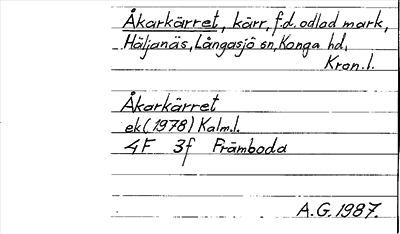 Åkarkärret, kärr, f.d. odlad mark,
Häljanäs, Långasjö sn, Konga hd,
Kron.l.
Åkarkärret
ek (1978) Kalm.l.
4F 3f Främboda
A.G. 1987.